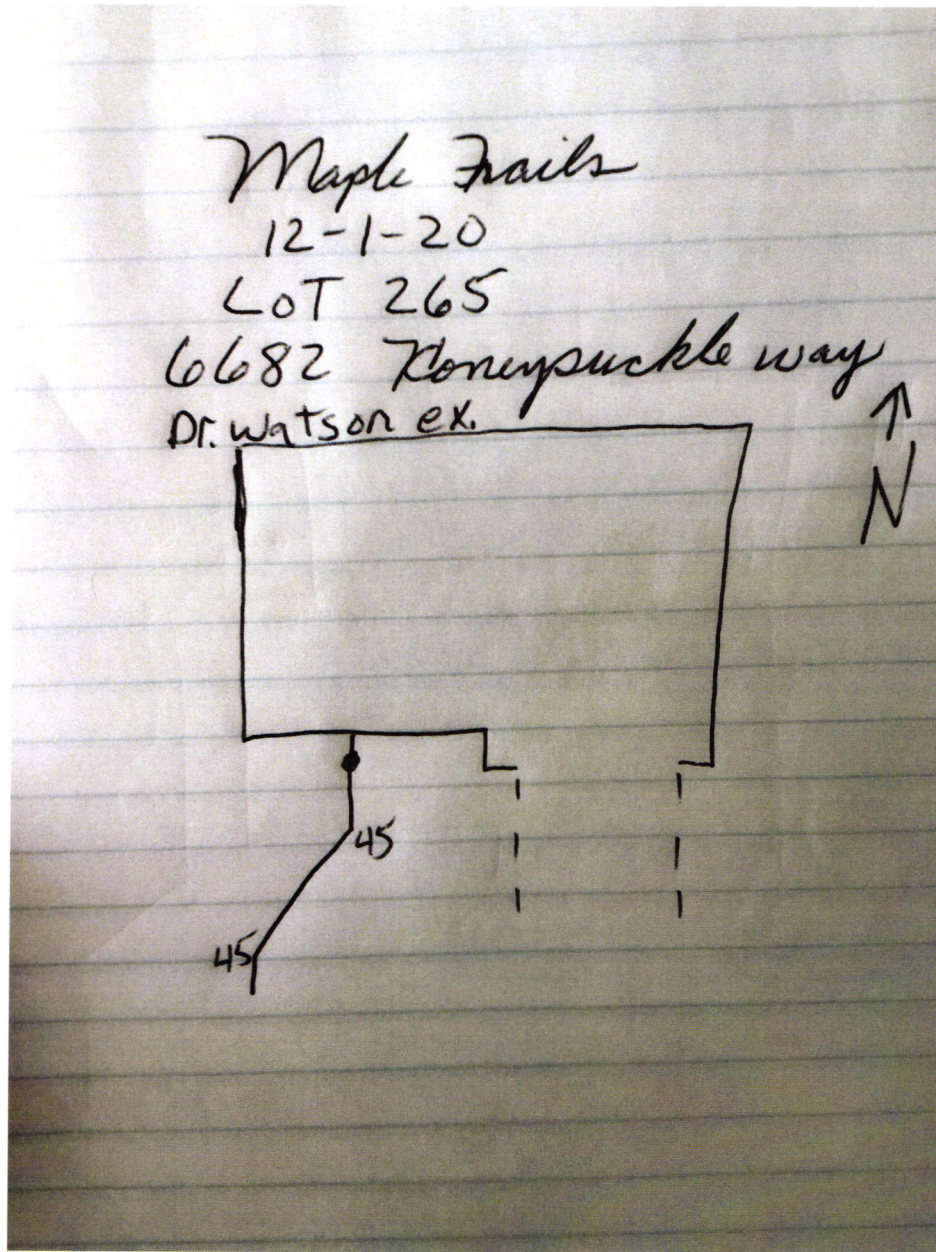 Maple Trails
12-1-20
LOT 265
6682 Honeysuckle way
Dr. Watson ex.
N
45
45